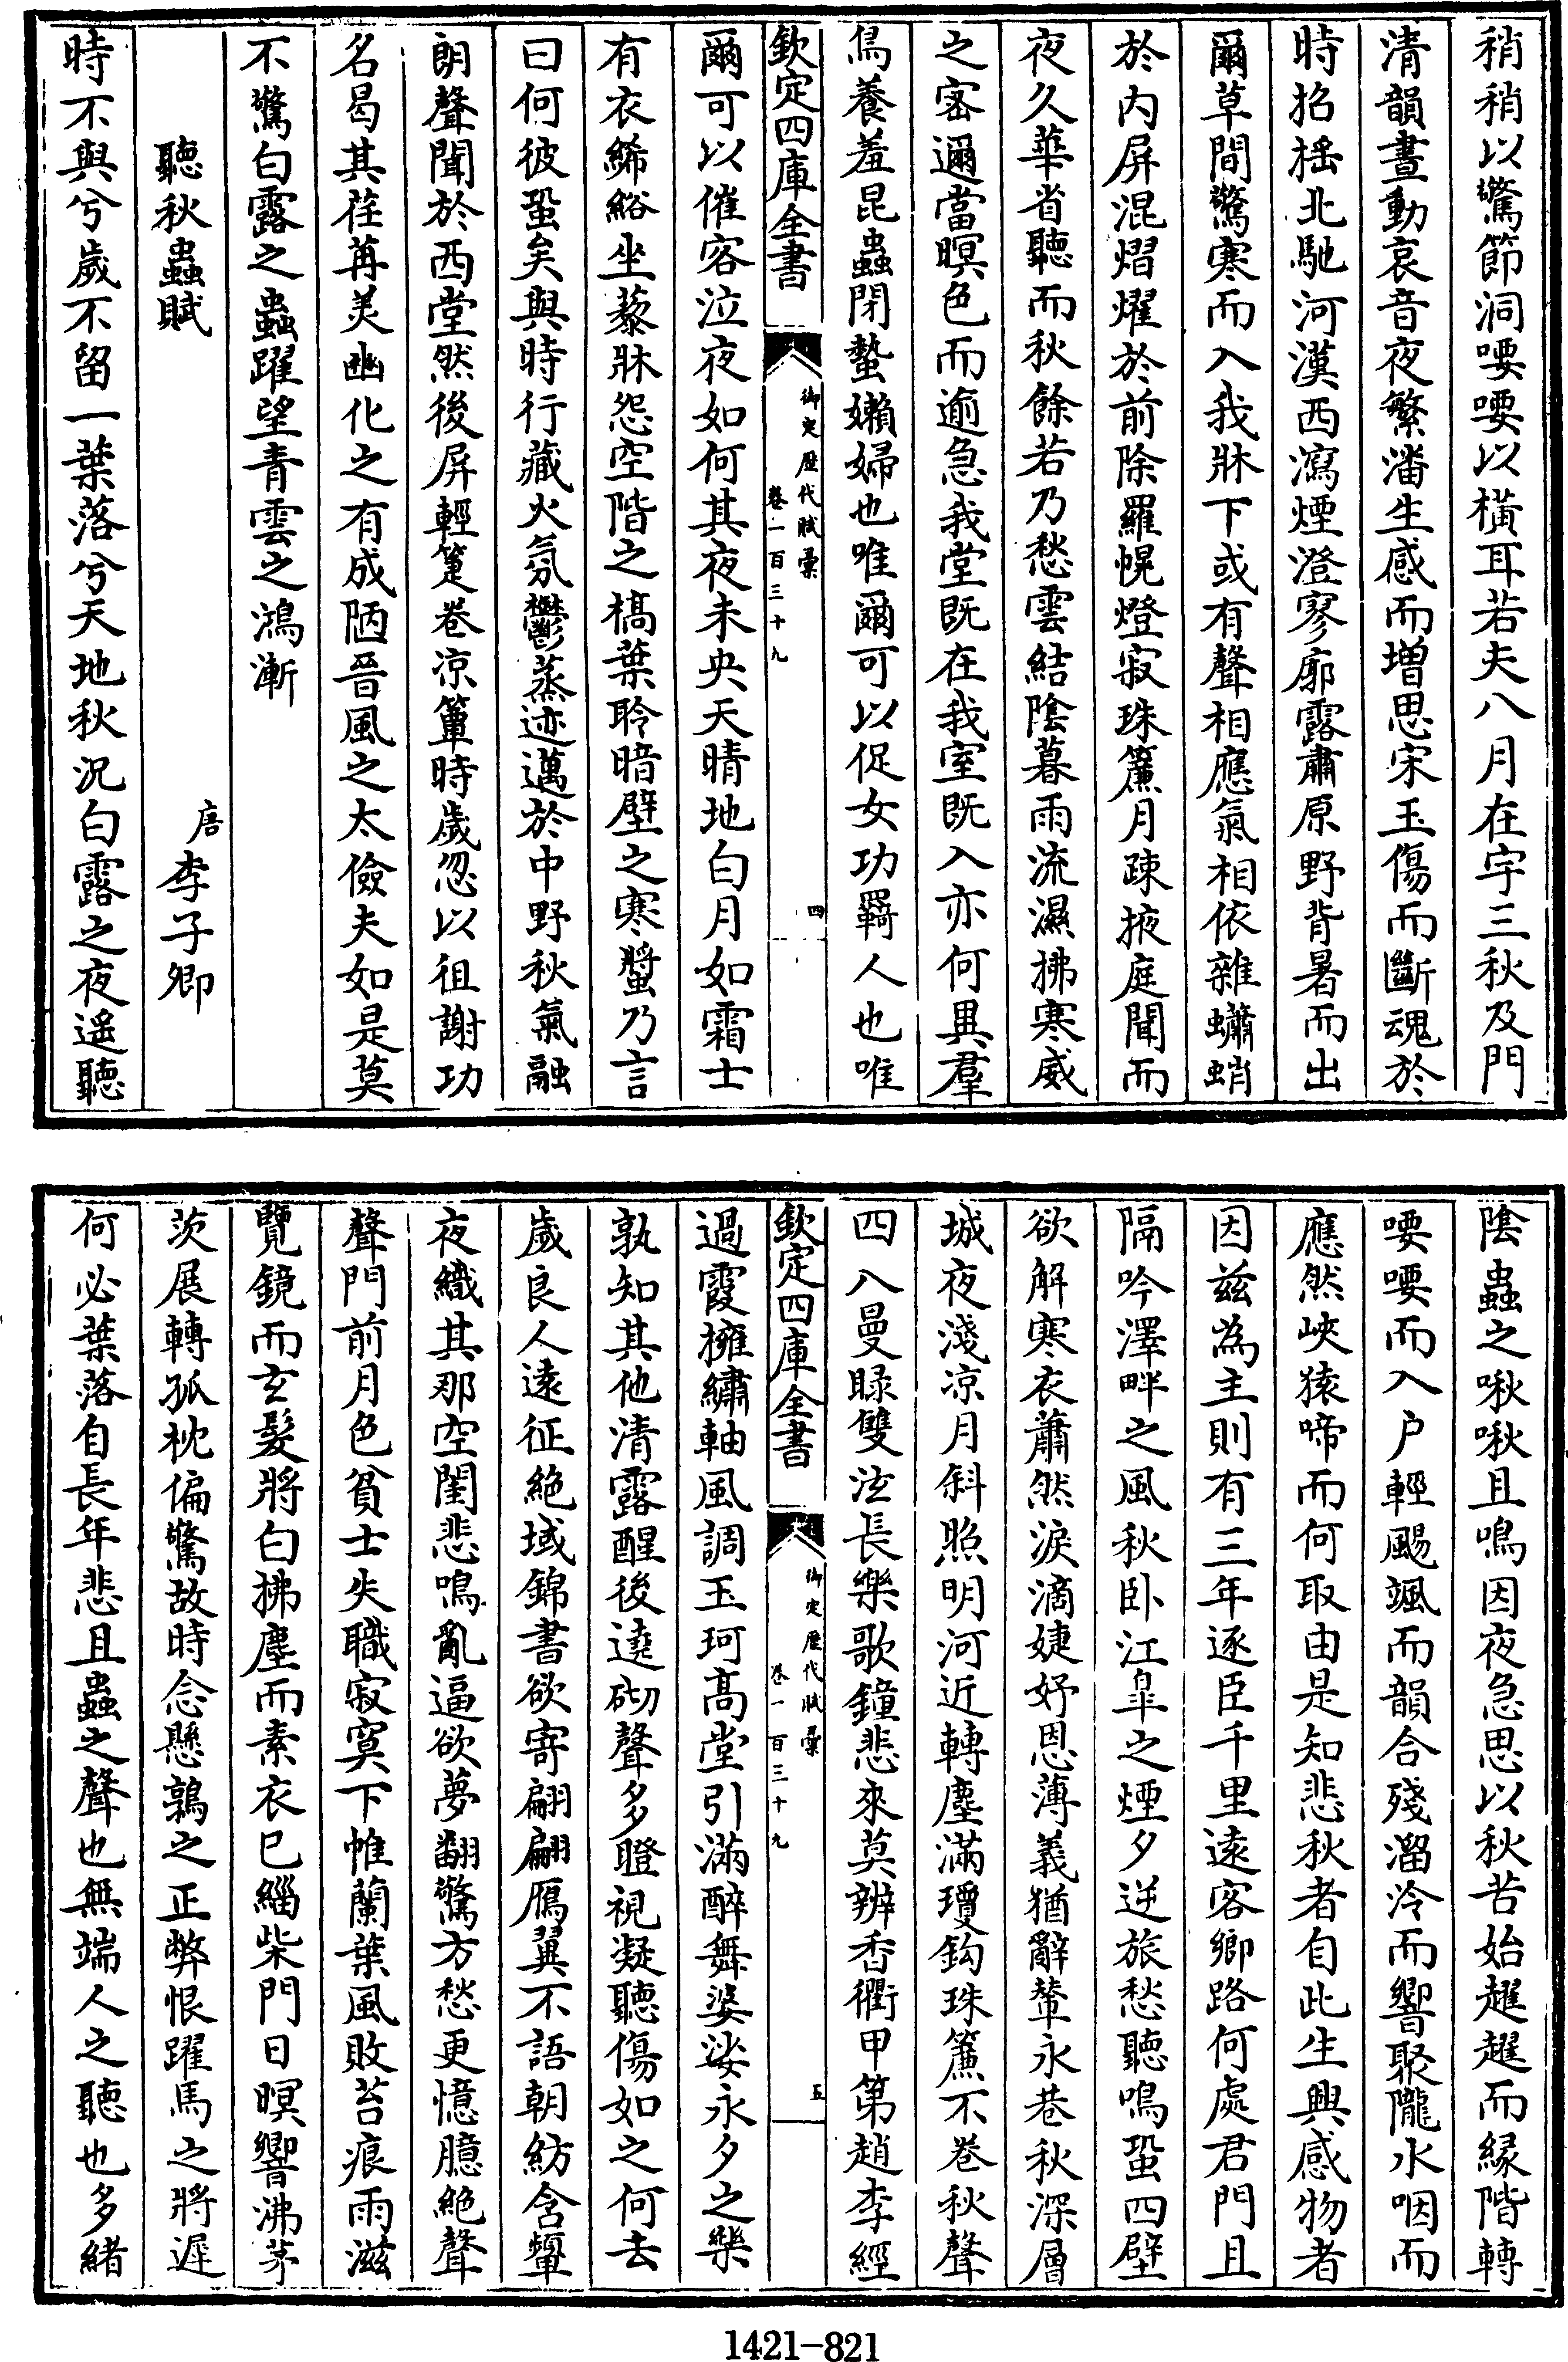 稍稍以驚節洞喓喓以橫耳若夫八月在宇三秋及門
清韻晝動哀音夜繁潘生感而増思宋玉傷而斷魂於
時招揺北馳河漢西瀉煙澄寥廓露肅原野背暑而出
爾草間驚寒而入我牀下或有聲相應氣相依雜蠨蛸
於内屏混熠燿於前除羅幌燈寂珠簾月疎掖庭聞而
夜久華省聽而秋餘若乃愁雲結陰暮雨流濕拂寒威
之宻邇當暝色而逾急我堂既在我室既入亦何異羣
鳥養羞昆蟲閉蟄嬾婦也唯爾可以促女功羇人也唯
欽定四庫全書
御定歴代賦彚
卷一百三十九
四
爾可以催客泣夜如何其夜未央天晴地白月如霜士
有衣絺綌坐藜牀怨空階之槁葉聆暗壁之寒螿乃言
曰何彼蛩矣與時行藏火氛鬱蒸迹邁於中野秋氣融
朗聲聞於西堂然後屏輕箑卷凉簟時歲忽以徂謝功
名曷其荏苒美幽化之有成陋晉風之太儉夫如是莫
不驚白露之蟲躍望青雲之鴻漸
聽秋蟲賦
唐李子卿
時不與兮歲不留一葉落兮天地秋況白露之夜遥聽
陰蟲之啾啾且鳴因夜急思以秋苦始趯趯而縁階轉
喓喓而入户輕颸颯而韻合殘溜泠而響聚隴水咽而
應然峽猿啼而何取由是知悲秋者自此生興感物者
因兹為主則有三年逐臣千里遠客鄉路何處君門且
隔吟澤畔之風秋卧江皐之煙夕逆旅愁聽鳴蛩四壁
欲解寒衣蕭然淚滴婕妤恩薄義猶辭輦永巷秋深層
城夜淺凉月斜照明河近轉塵滿瓊鈎珠簾不巻秋聲
四入曼睩雙泫長樂歌鐘悲來莫辨香衢甲第趙李經
欽定四庫全書
御定歴代賦彚
卷一百三十九
五
過霞擁繡軸風調玉珂髙堂引滿醉舞婆娑永夕之樂
孰知其他清露醒後遶砌聲多瞪視凝聽傷如之何去
歲良人遠征絶域錦書欲寄翩翩鴈翼不語朝紡含顰
夜織其那空閨悲鳴亂逼欲夢翻驚方愁更憶臆絶聲
聲門前月色貧士失職寂寞下帷蘭葉風敗苔痕雨滋
覽鏡而玄髮將白拂塵而素衣已緇柴門日暝響沸茅
茨展轉孤枕偏驚故時念懸鶉之正弊恨躍馬之將遲
何必葉落自長年悲且蟲之聲也無端人之聽也多緒
1421-821